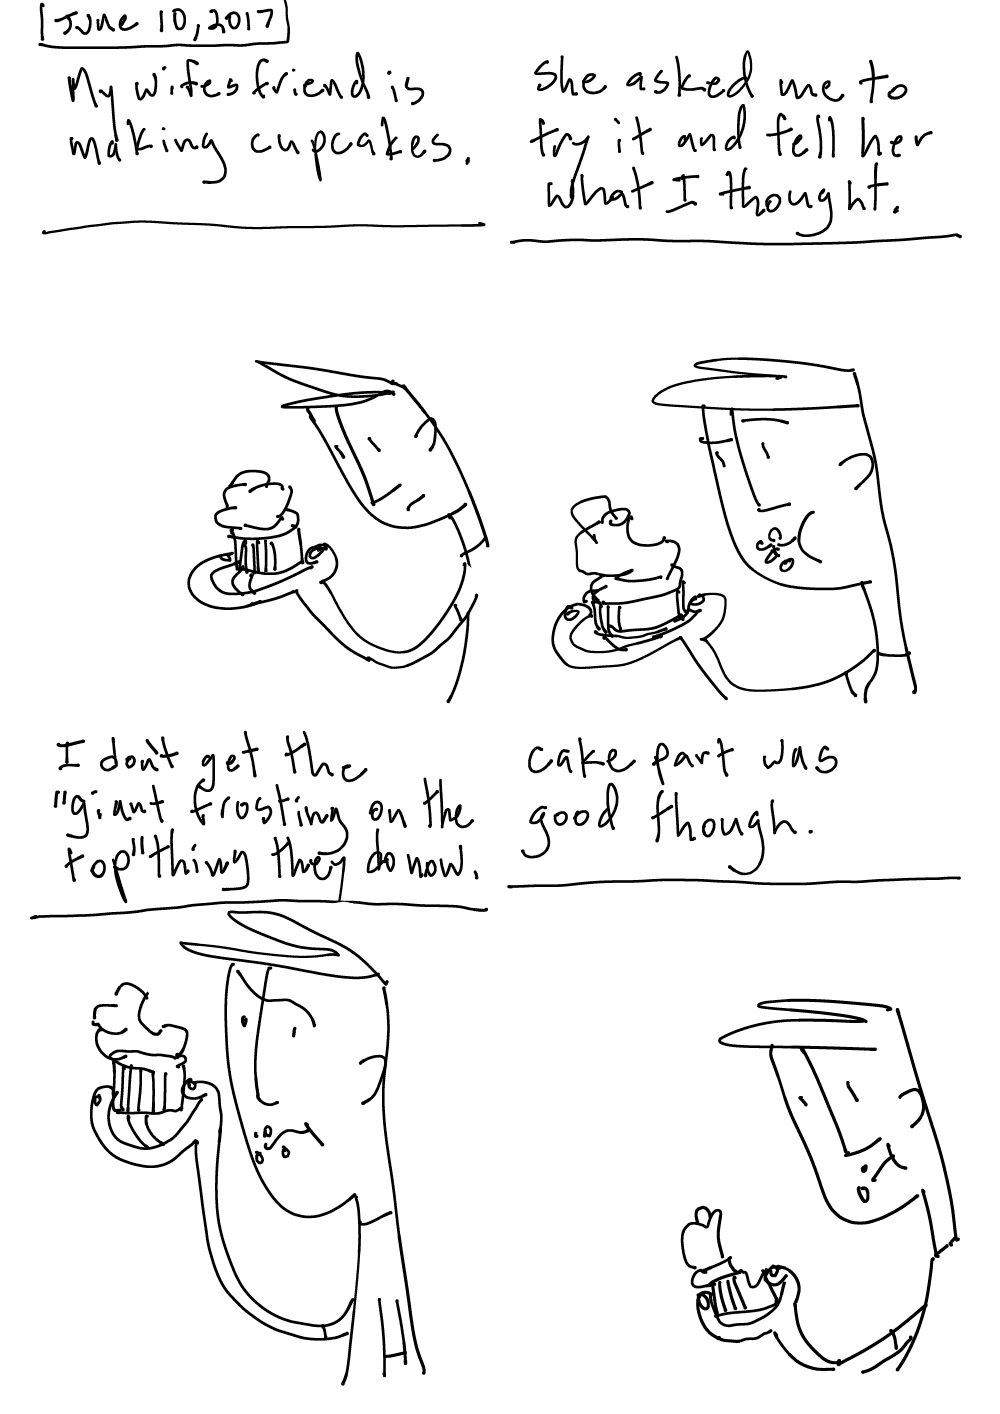 June 10, 2017
My wifes friend is
making cupcakes.
She asked me to
try it and tell her
what I thought.
I don't get the
"giant frosting on the
top" thing they do now.
cake part was
good though.